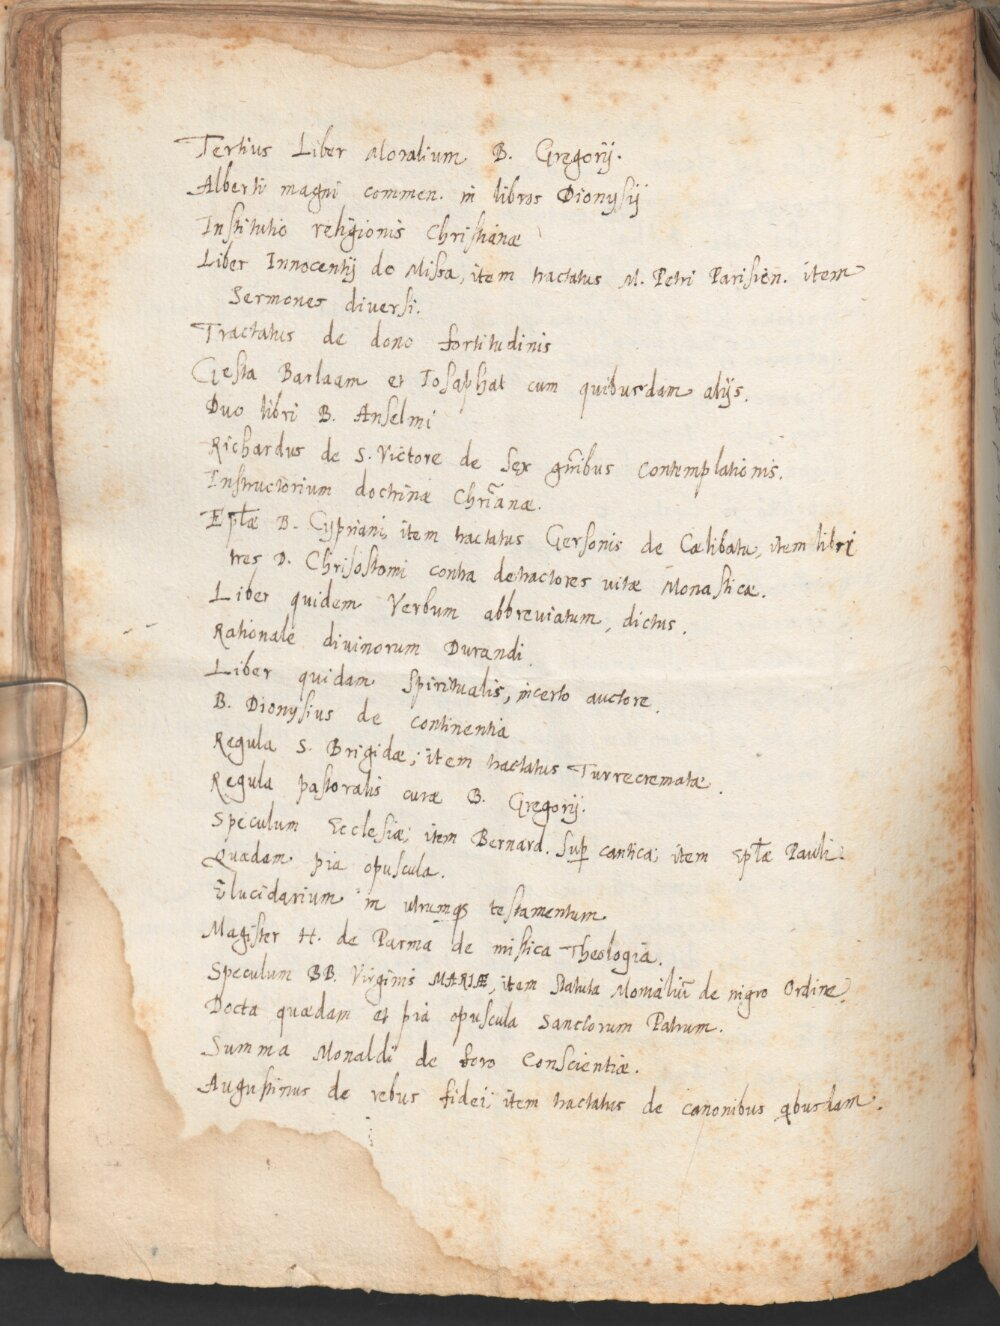 Tertius Liber Moralium B. Gregorij.
Alberti magni commen. in libros Dionysij
Institutio religionis Christianæ
Liber Innocentij de Missa, item tractatus M. Petri Parisien. item
Sermones diversi.
Tractatus de dono fortitudinis
Gesta Barlaam et Iosaphat cum quibusdam alijs.
Duo libri B. Anselmi
Richardus de S. Victore de sex gnĩbus Contemplationis.
Instructorium doctrinæ Chrĩanæ.
Eptl̃æ B. Cypriani, item tractatus Gersonis de Cœlibatu, item libri
tres D. Chrisostomi contra detractores uitæ Monasticæ.
Liber quidem Verbum abbreviatum, dictus.
Rationale diuinorum Durandi.
Liber quidam Spiritualis, incerto auctore.
B. Dionysius de continentia
Regula S. Brigidæ; item tractatus Turrecrematæ.
Regula pastoralis curæ B. Gregorij.
Speculum Ecclesiæ; item Bernard. sup̱ cantica; item Eptl̃æ Pauli.
Quædam pia opuscula.
Elucidarium in utrumq; testamentum.
Magister H. de Parma de mistica Theologia.
Speculum BB. Virginis MARIÆ, item statuta Monialiũ de nigro Ordine.
Docta quædam et pia opuscula Sanctorum Patrum.
Summa Monaldi de foro Conscientiæ.
Augustinus de rebus fidei; item tractatus de canonibus qbusdam.